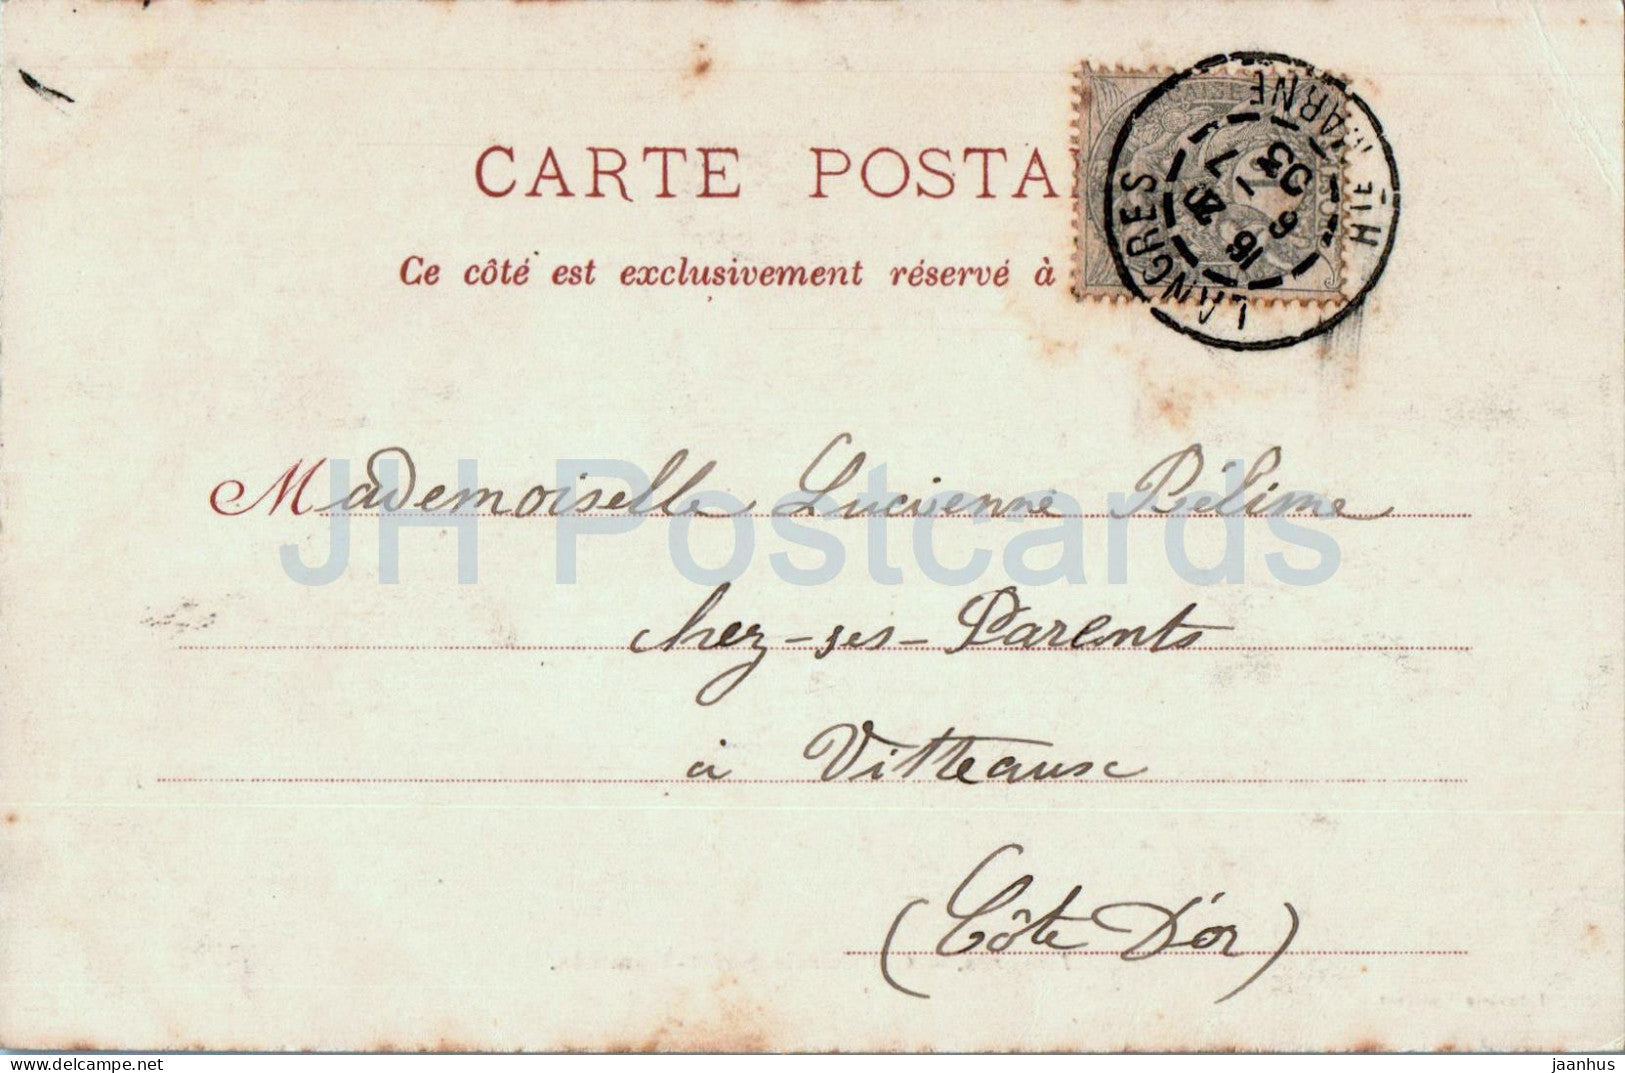 CARTE POSTA
Ce côté est exclusivement réservé à
LANGRES
HTE MARNE
Mademoiselle Lucienne Bélime
chez-ses-Parents
à Vitteaux
(Côte D'or)
JH Postcards
delcampe.net
jaanhus